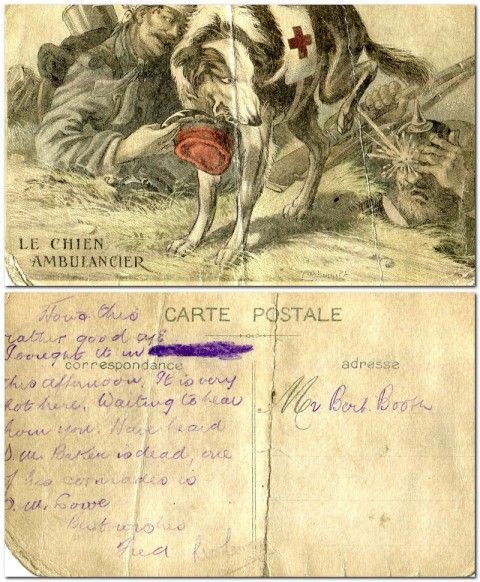 LE CHIEN
AMBULANCIER
CARTE POSTALE
correspondance
adresse
Now this
rather good
I bought it in
this afternoon. It is very
hot here. Waiting to hear
from you. Have heard
Baker is dead, one
of his comrades
Lowe
Best wishes
Fred
Mr Bert. Booth